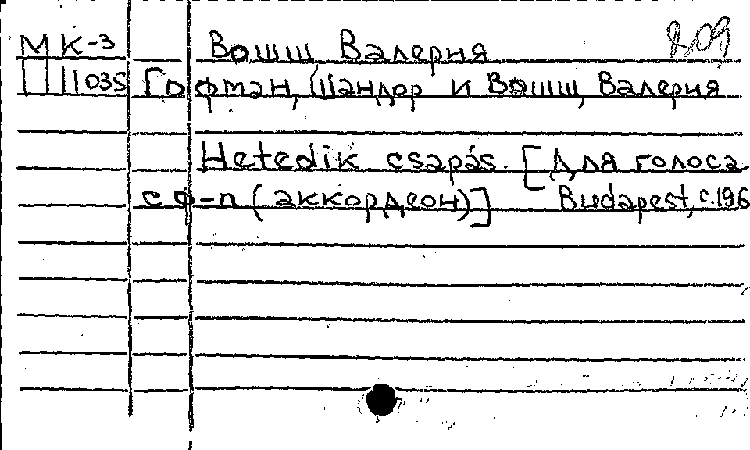 МК-3 Вошш, Валерия 209
Ш1035 Гофман, Шандор и Вошш, Валерия
Hetedik csapás. [Для голоса
с ф-п (аккордеон)] Budapest, с.196